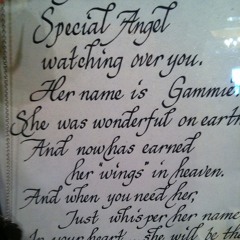 Special Angel
watching over you.
Her name is Gammie
She was wonderful on earth
And now has earned
her "wings" in heaven.
And when you need her,
Just whisper her name
In your heart she will be the